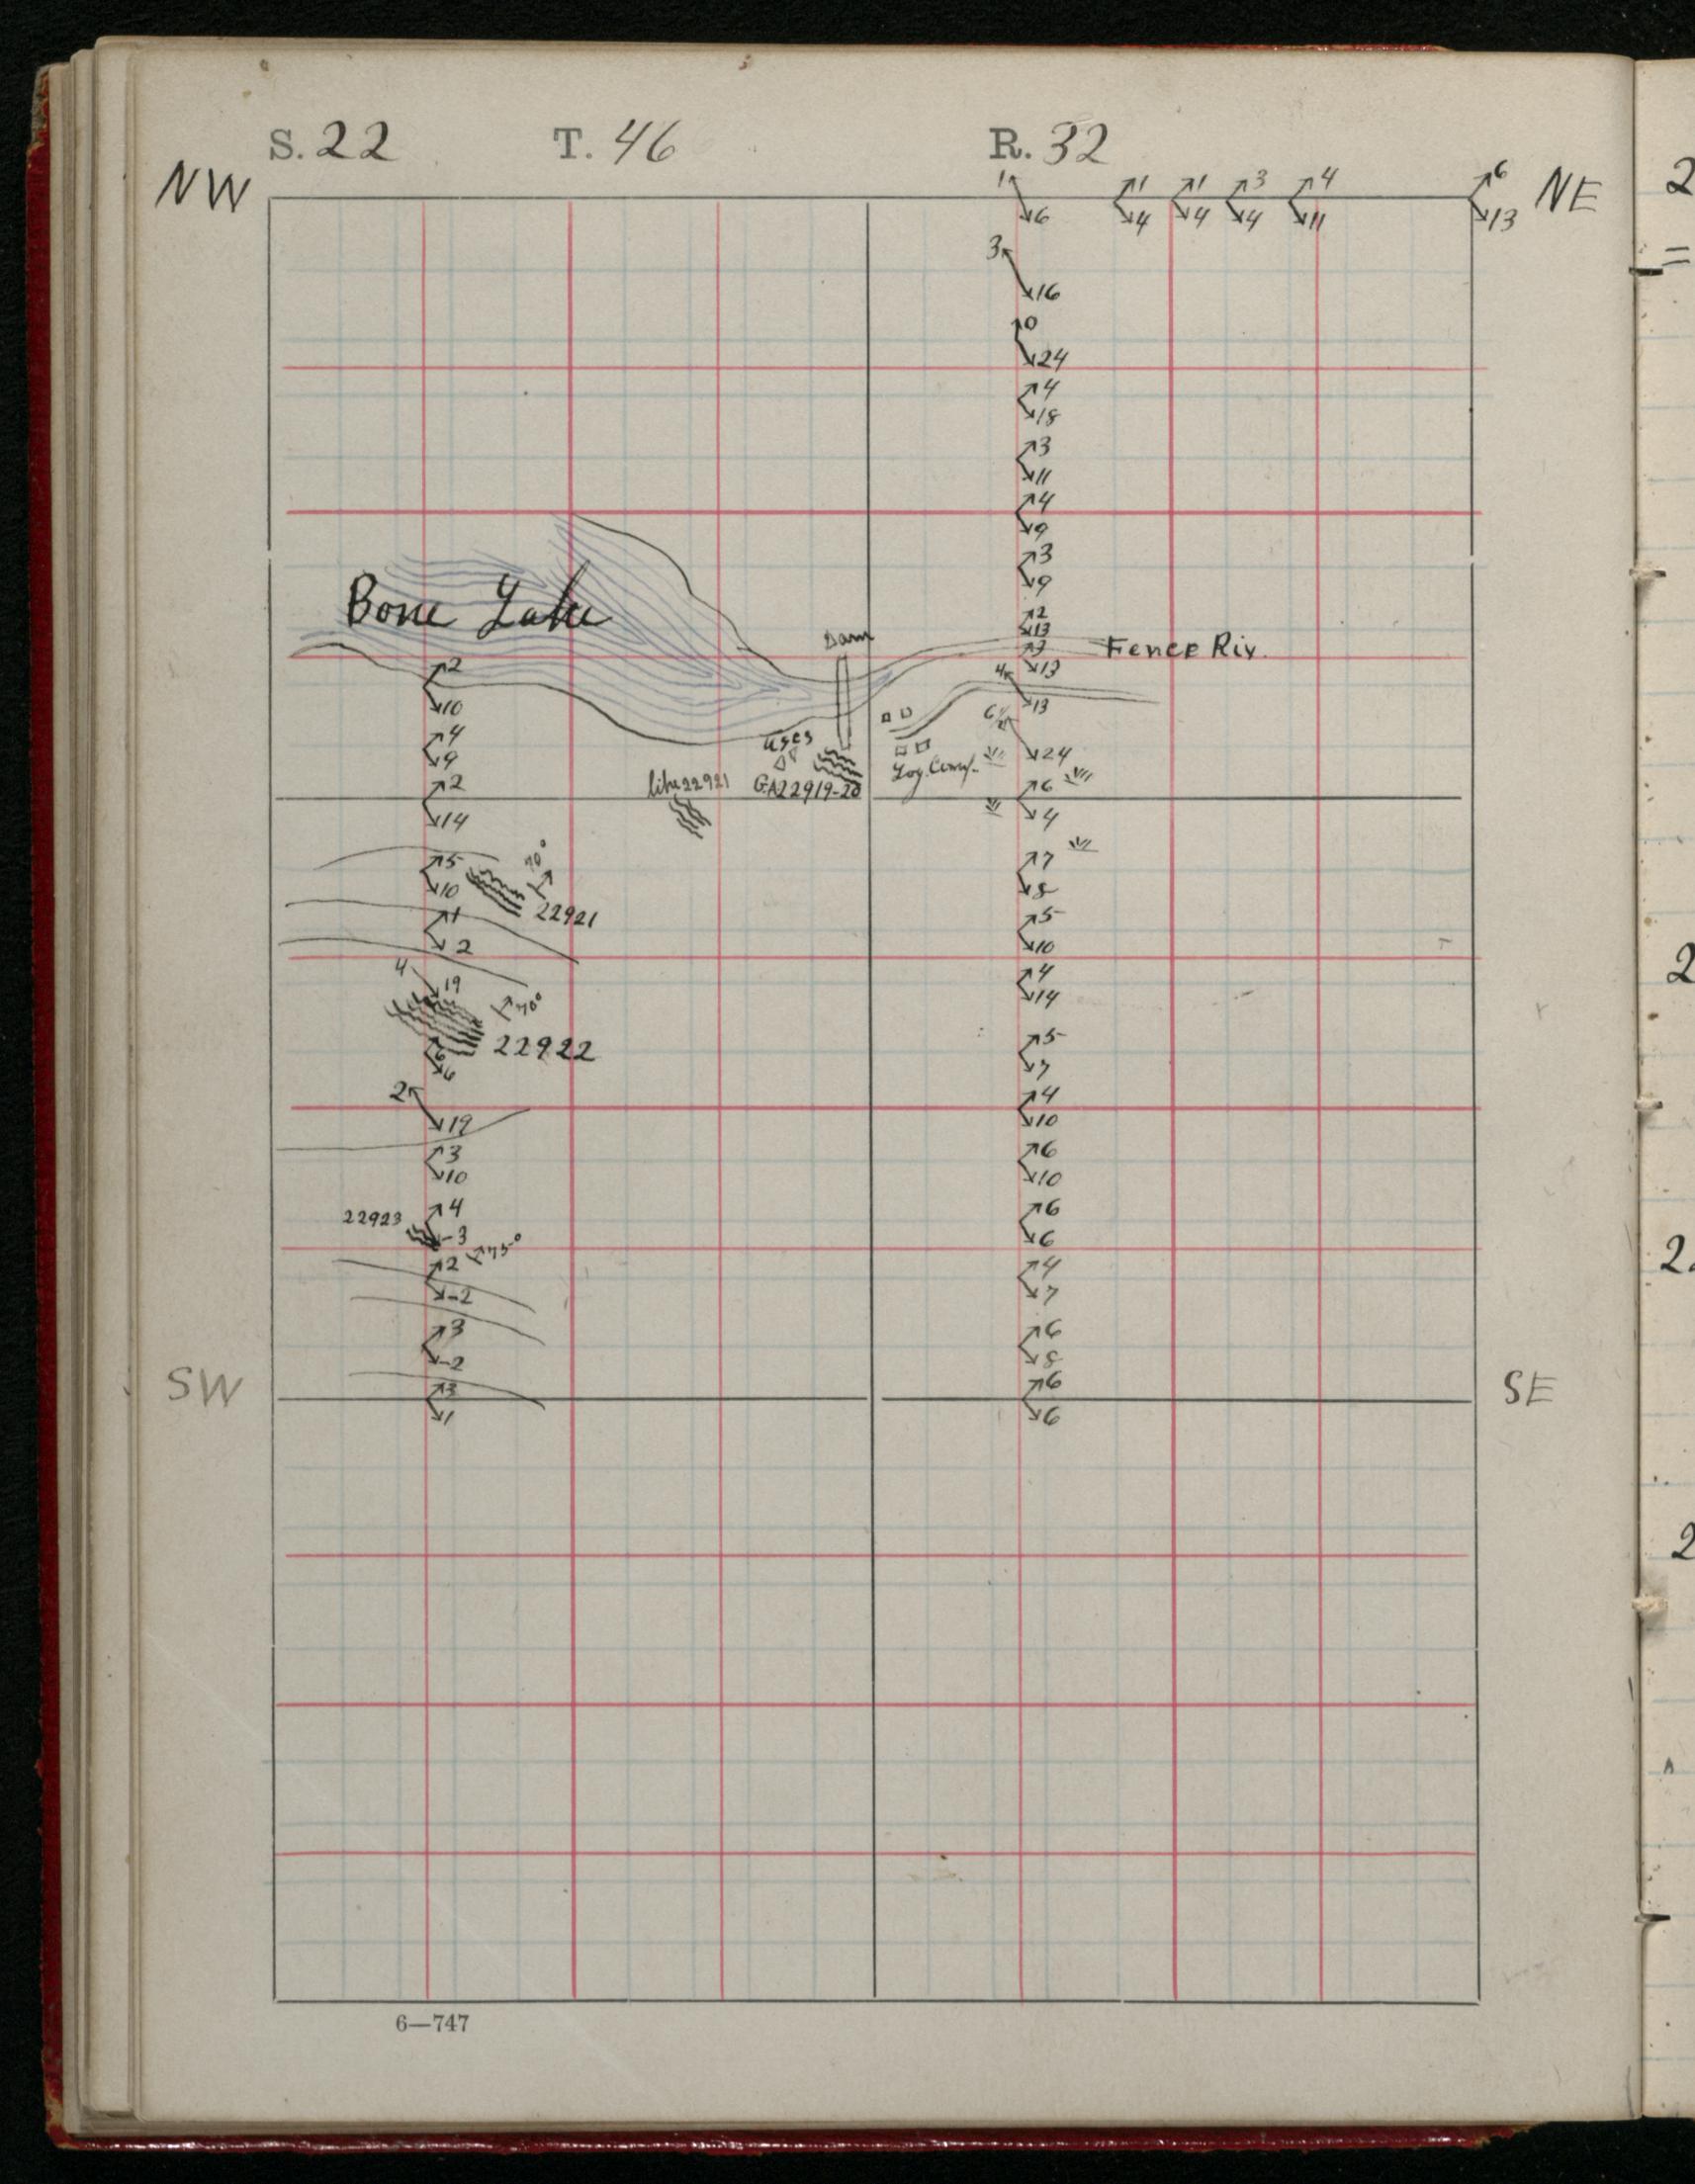 S. 22 T. 46 R. 32
NW NE
1 1 1 3 4 6
6 4 4 4 11 13
3
16
0
24
4
18
3
11
4
9
3
9
2
13
3
13
4
13
24
6
4
7
8
5
10
4
14
5
7
4
10
6
10
6
6
4
7
6
8
6
6
Bone Lake
Dam
Fence Riv.
Log Camp.
GA22919-20
like 22921
2
10
4
9
2
14
5
10
70°
22921
1
2
4
19
70°
22922
6
6
2
19
3
10
22923
4
-3
75°
2
-2
3
-2
3
1
SW SE
6—747
2
=
2
2
2